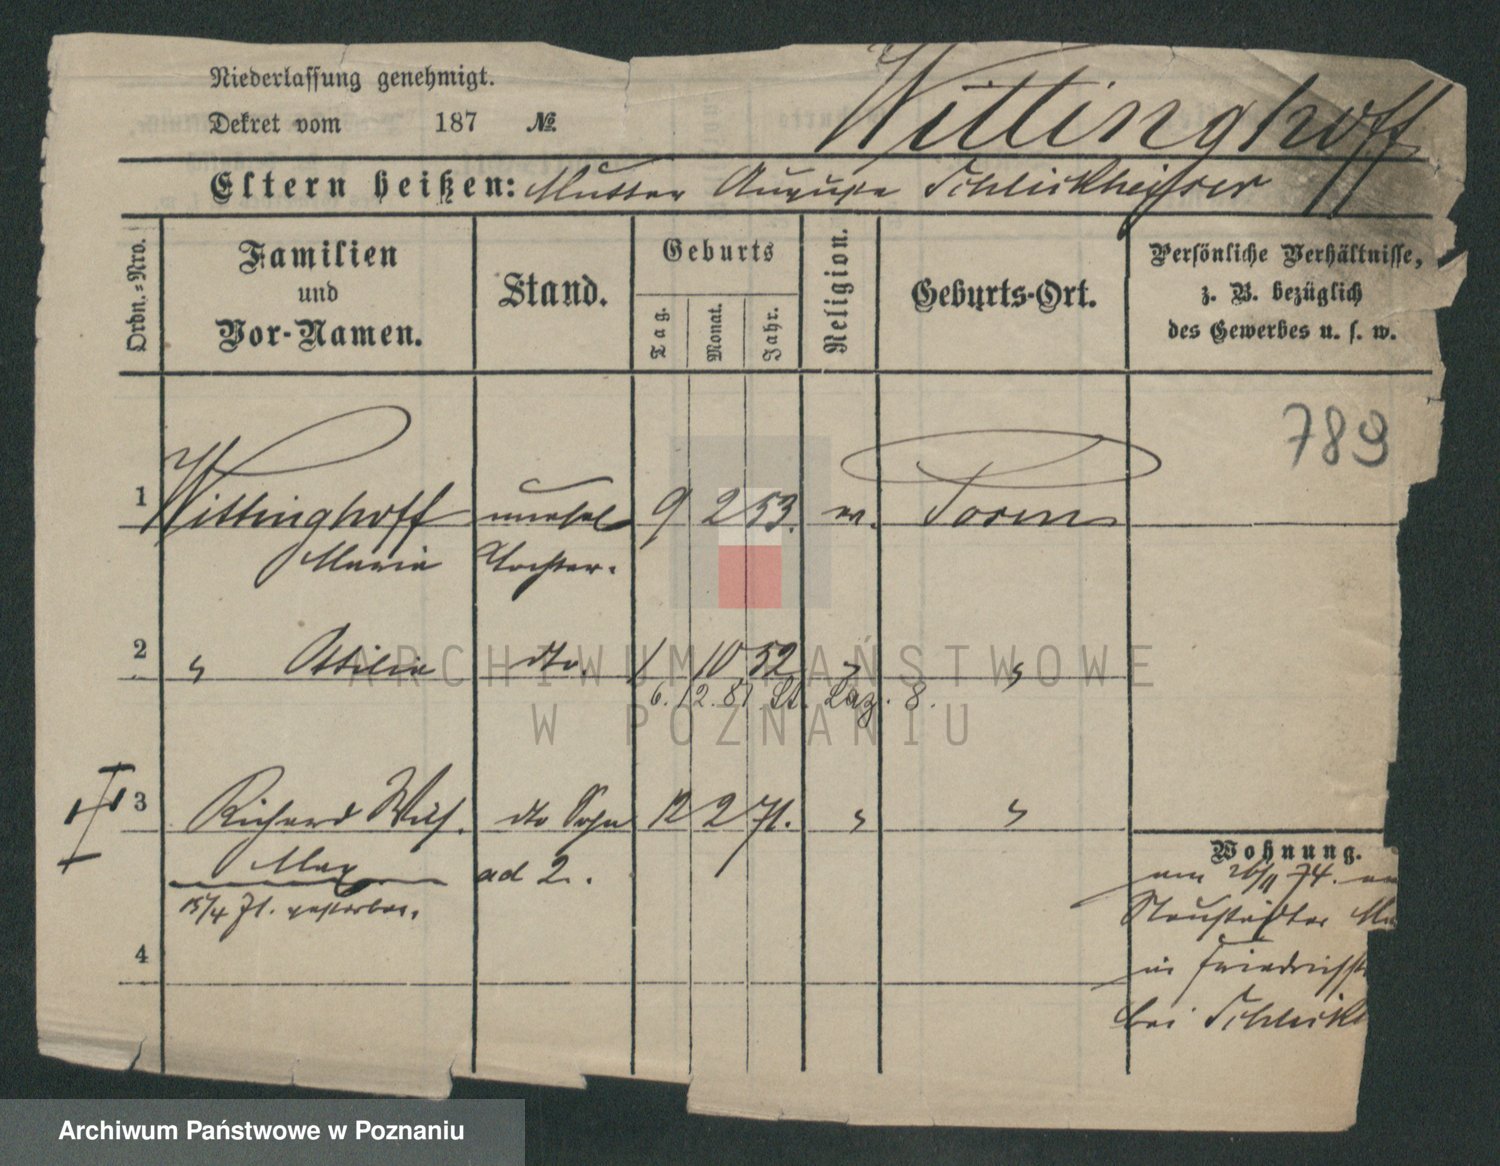 Niederlassung genehmigt.
Dekret vom 187 №
Wittinghoff
Eltern heißen: Mutter Auguste Schlickheiser
Ordn.-Nro.
Familien
und
Vor-Namen.
Stand.
Geburts
Tag.
Monat.
Jahr.
Religion.
Geburts-Ort.
Persönliche Verhältnisse,
z. B. bezüglich
des Gewerbes u. s. w.
789
1 Wittinghoff unehel 9 2 53. Posen
Maria Tochter.
2 " Ottilie dto. 1 10 52 " "
6. 12. 81 St. Laz. 8.
3 Richard Wilh. dto Sohn 12 2 71. " "
Max ad 2.
15/4 71. gestorben.
4
Wohnung.
am 26/11 74.
Neustädter
in Friedrichst
bei Schlickh
ARCHIWUM PAŃSTWOWE
W POZNANIU
Archiwum Państwowe w Poznaniu